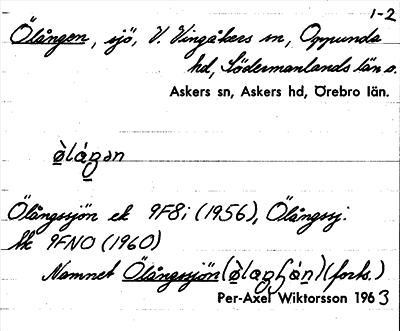 1-2
Ölången, sjö, V. Vingåkers sn, Oppunda
hd, Södermanlands län o.
Askers sn, Askers hd, Örebro län.
Ölångssjön ek 9F8i (1956), Ölångssj.
9FNO (1960)
Namnet Ölångssjön (forts.)
Per-Axel Wiktorsson 1963